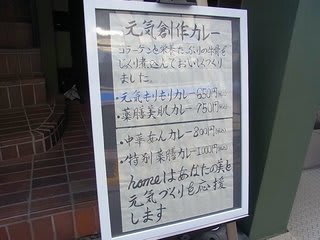 元気創作カレー
コラーゲンと栄養たっぷりの牛骨を
じっくり煮込んでおいしくつくり
ました。
・元気もりもりカレー 650円(税込)
・薬膳美肌カレー 750円(税込)
・中華あんカレー 800円(税込)
・特別薬膳カレー 1000円(税込)
homeはあなたの漢を
元気づくりを応援
します